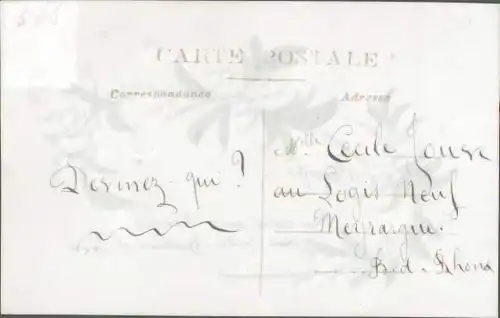 CARTE POSTALE
Correspondance
Adresse
Devinez qui?
Mlle Cecile
au Logis Neuf
Meyrargue.
Bd. Rhone